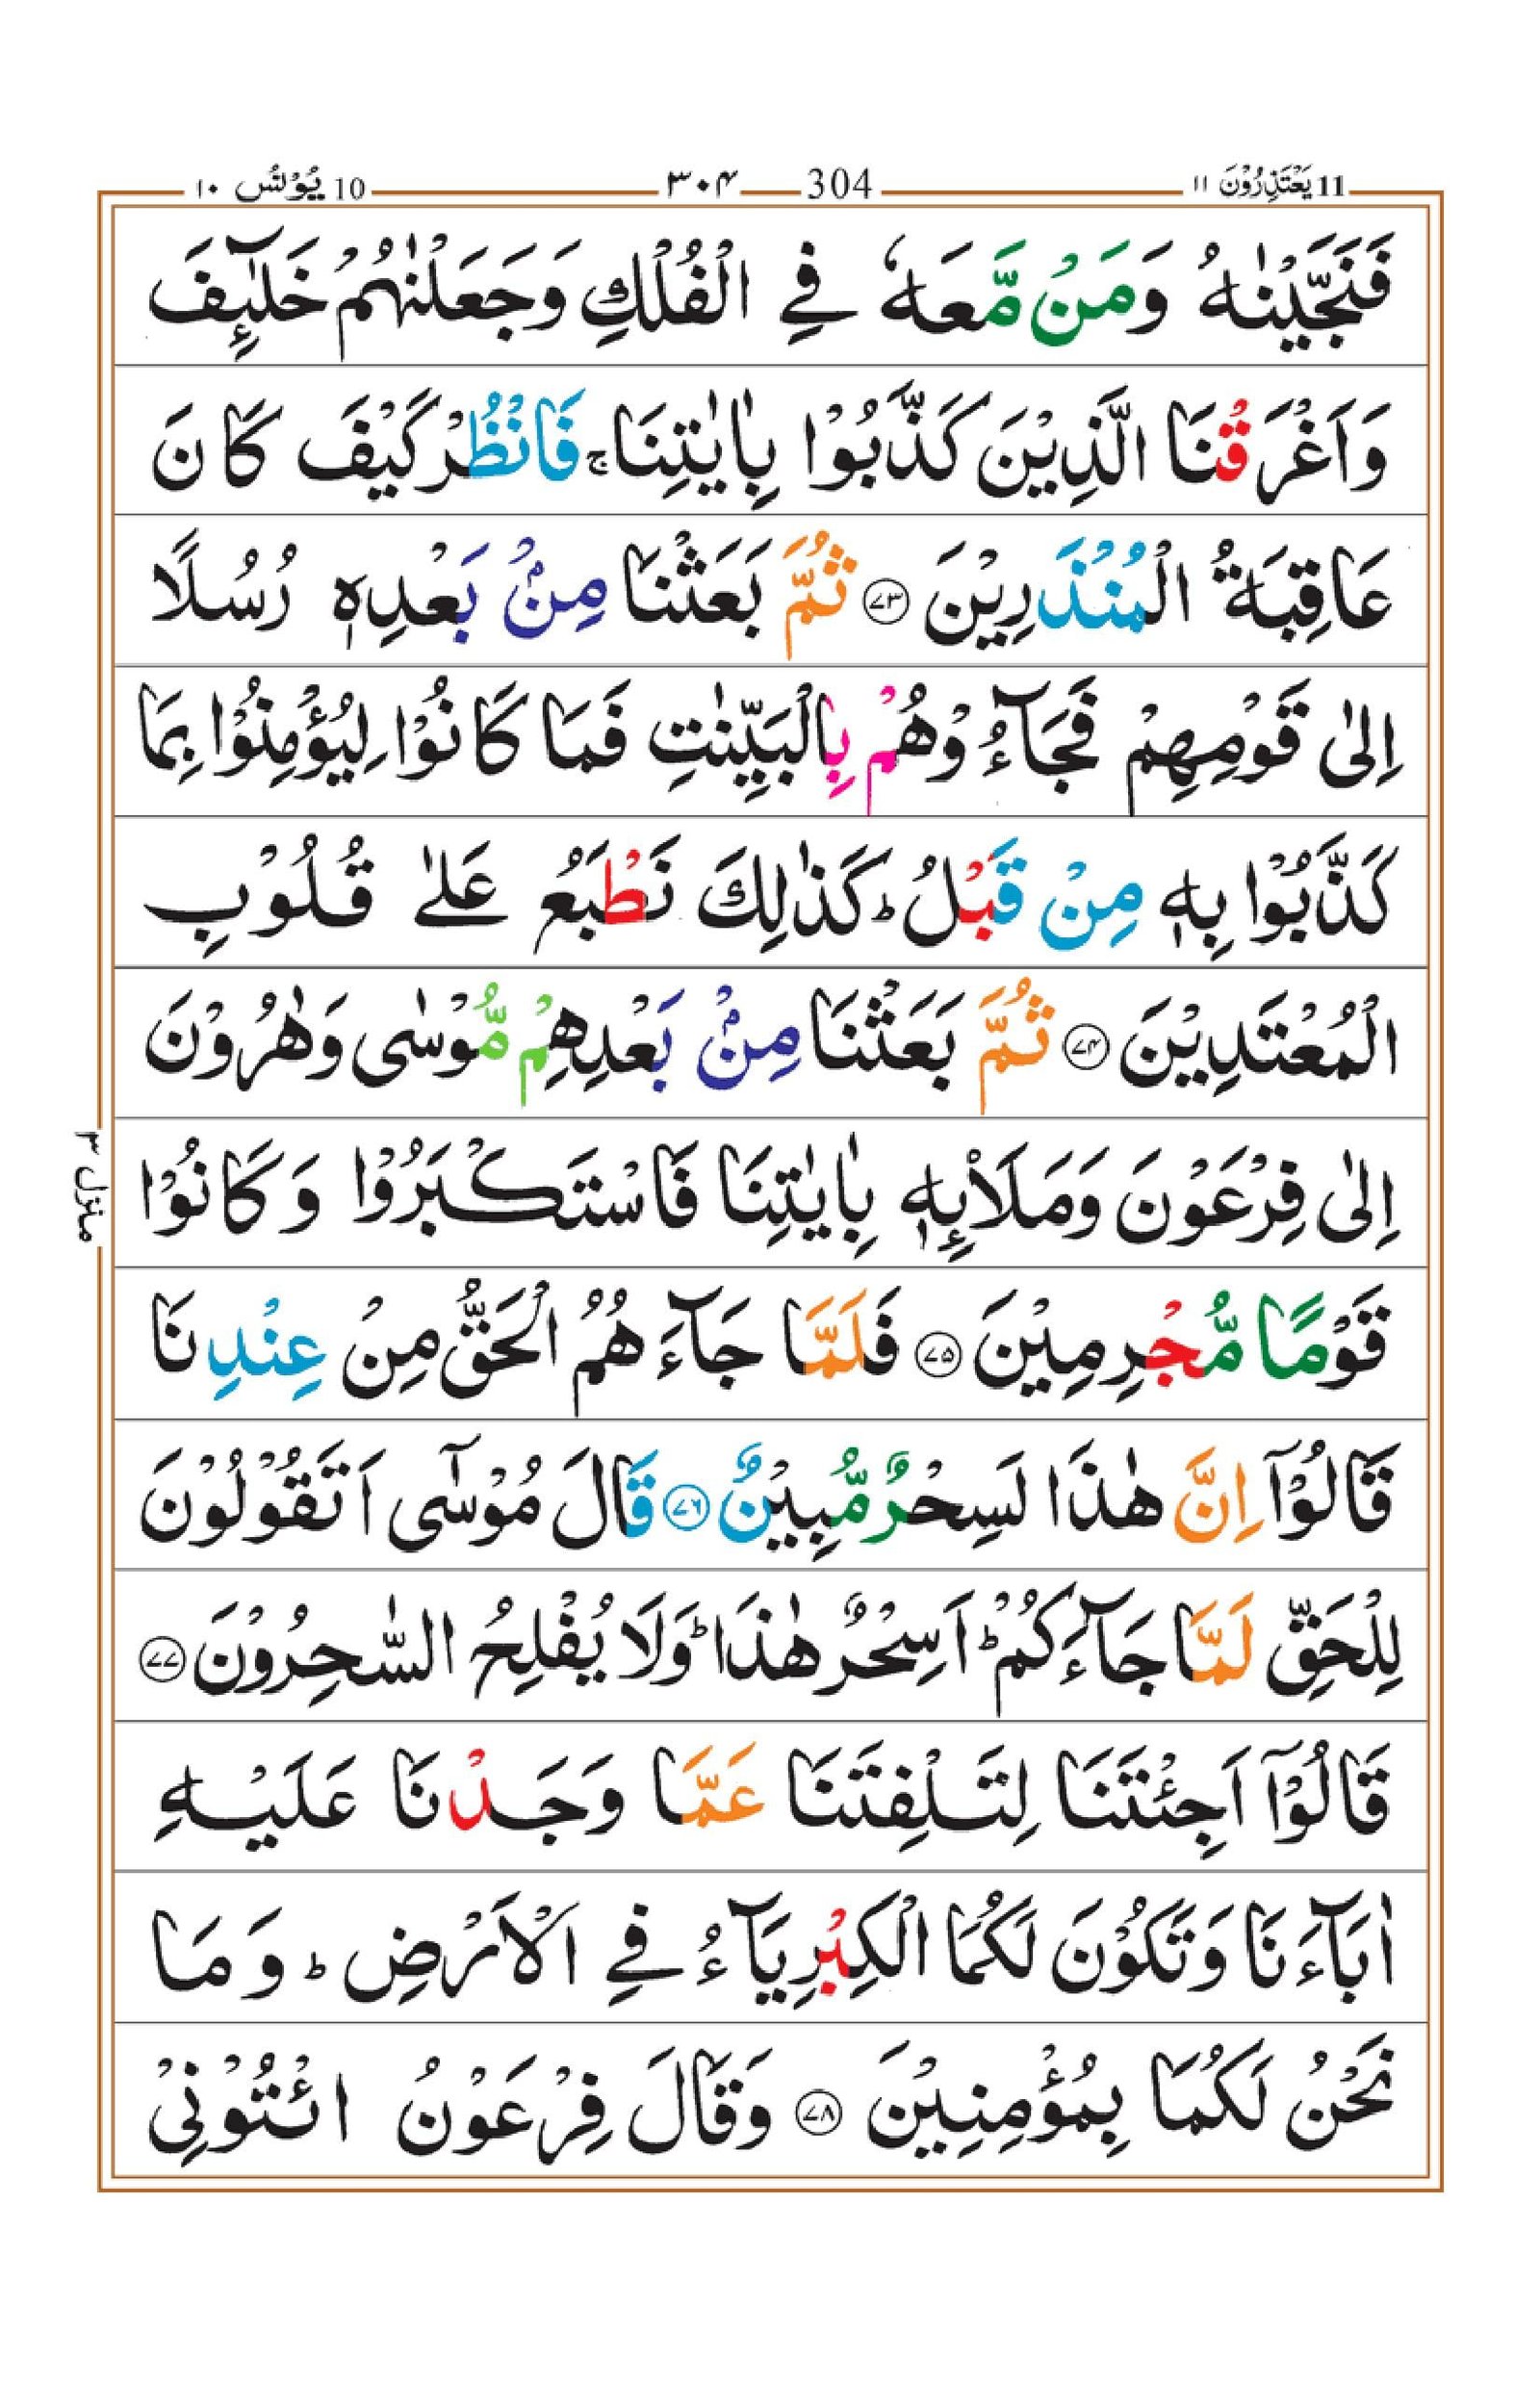 11 يَعْتَذِرُوْنَ ١١ 304 ٣٠۴ 10 يُوْنُس ١٠
فَنَجَّيْنٰهُ وَمَنْ مَّعَهٗ فِي الْفُلْكِ وَجَعَلْنٰهُمْ خَلٰٓئِفَ
وَاَغْرَقْنَا الَّذِيْنَ كَذَّبُوْا بِاٰيٰتِنَا ۚ فَانْظُرْ كَيْفَ كَانَ
عَاقِبَةُ الْمُنْذَرِيْنَ ۝۷۳ ثُمَّ بَعَثْنَا مِنْۢ بَعْدِهٖ رُسُلًا
اِلٰى قَوْمِهِمْ فَجَآءُوْهُمْ بِالْبَيِّنٰتِ فَمَا كَانُوْا لِيُؤْمِنُوْا بِمَا
كَذَّبُوْا بِهٖ مِنْ قَبْلُ ؕ كَذٰلِكَ نَطْبَعُ عَلٰى قُلُوْبِ
الْمُعْتَدِيْنَ ۝۷۴ ثُمَّ بَعَثْنَا مِنْۢ بَعْدِهِمْ مُّوْسٰى وَهٰرُوْنَ
اِلٰى فِرْعَوْنَ وَمَلَا۟ئِهٖ بِاٰيٰتِنَا فَاسْتَكْبَرُوْا وَكَانُوْا
قَوْمًا مُّجْرِمِيْنَ ۝۷۵ فَلَمَّا جَآءَهُمُ الْحَقُّ مِنْ عِنْدِنَا
قَالُوْٓا اِنَّ هٰذَا لَسِحْرٌ مُّبِيْنٌ ۝۷۶ قَالَ مُوْسٰٓى اَتَقُوْلُوْنَ
لِلْحَقِّ لَمَّا جَآءَكُمْ ؕ اَسِحْرٌ هٰذَا ؕ وَلَا يُفْلِحُ السّٰحِرُوْنَ ۝۷۷
قَالُوْٓا اَجِئْتَنَا لِتَلْفِتَنَا عَمَّا وَجَدْنَا عَلَيْهِ
اٰبَآءَنَا وَتَكُوْنَ لَكُمَا الْكِبْرِيَآءُ فِي الْاَرْضِ ؕ وَمَا
نَحْنُ لَكُمَا بِمُؤْمِنِيْنَ ۝۷۸ وَقَالَ فِرْعَوْنُ ائْتُوْنِيْ
منزل ٣